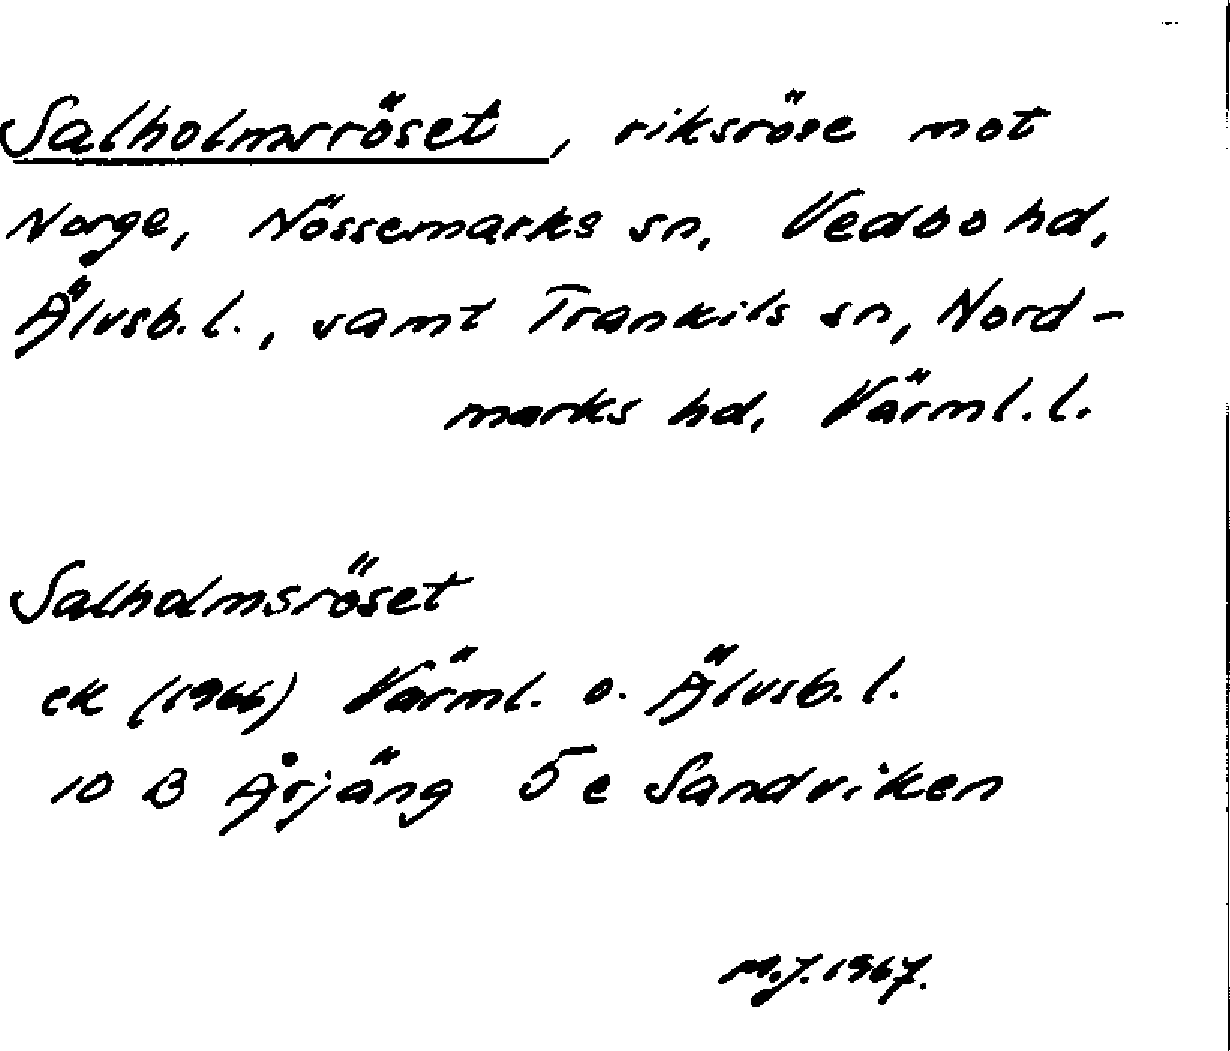 Salholmsröset, riksröse mot
Norge, Nössemarks sn, Vedbo hd,
Älvsb. l., samt Trankils sn, Nord-
marks hd, Värml. l.
Salholmsröset
ek (1966) Värml. o. Älvsb. l.
10 B Årjäng 5e Sandviken
M.J. 1967.